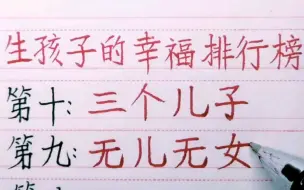 生孩子的幸福排行榜
第十:三个儿子
第九:无儿无女